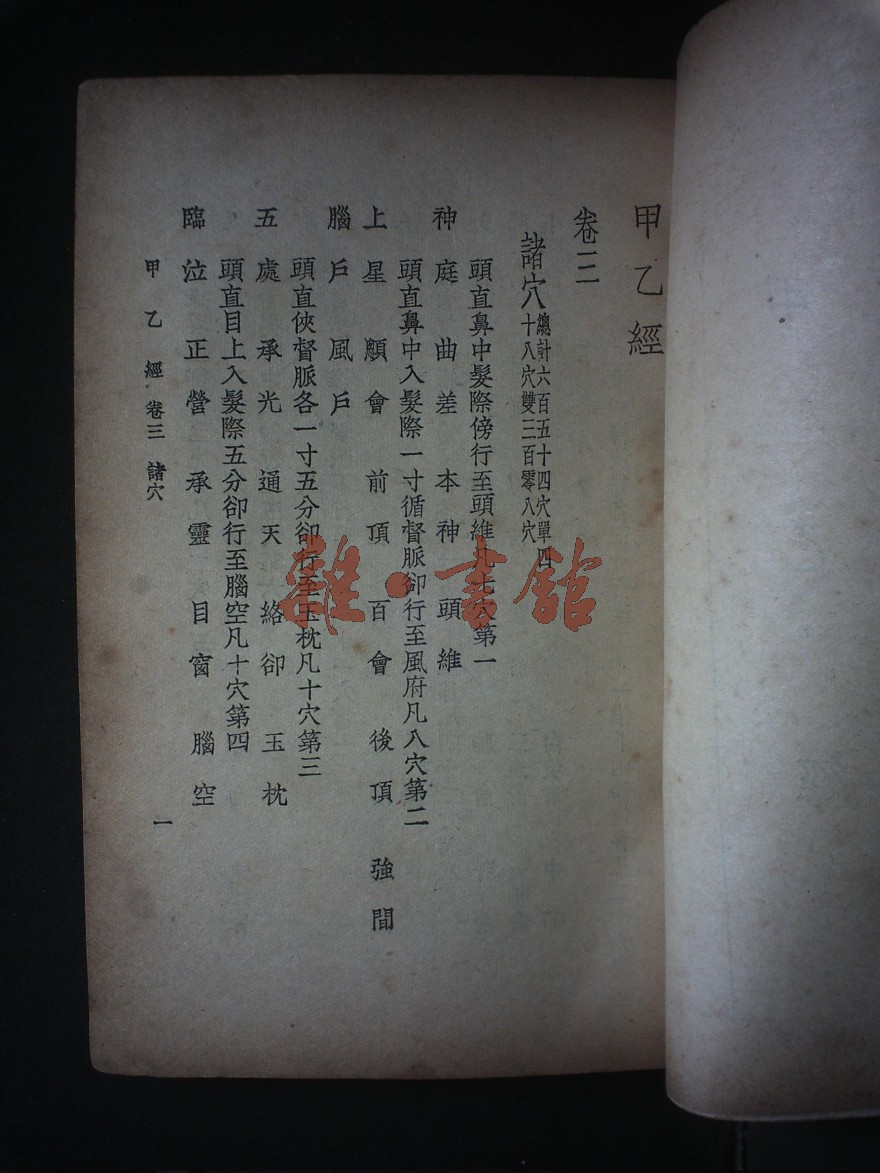 甲乙經
卷三
諸穴總計六百五十四穴單四
十八穴雙三百零八穴
頭直鼻中髮際傍行至頭維凡七穴第一
神庭 曲差 本神 頭維
頭直鼻中入髮際一寸循督脈卻行至風府凡八穴第二
上星 顖會 前頂 百會 後頂 強間
腦戶 風戶
頭直俠督脈各一寸五分卻行至玉枕凡十穴第三
五處 承光 通天 絡卻 玉枕
頭直目上入髮際五分卻行至腦空凡十穴第四
臨泣 正營 承靈 目窗 腦空
甲乙經 卷三 諸穴 一
雜·書館